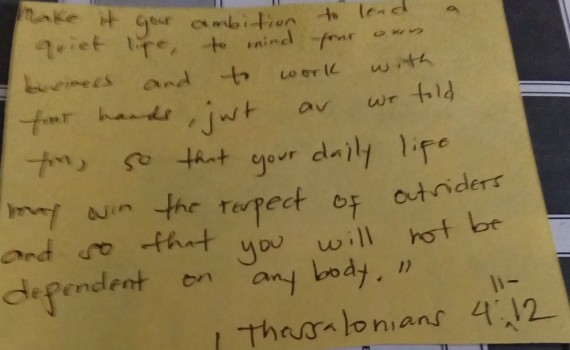 Make it your ambition to lead a
quiet life, to mind your own
business and to work with
your hands, just as we told
you, so that your daily life
may win the respect of outsiders
and so that you will not be
dependent on any body."
1 Thassalonians 4:11-12